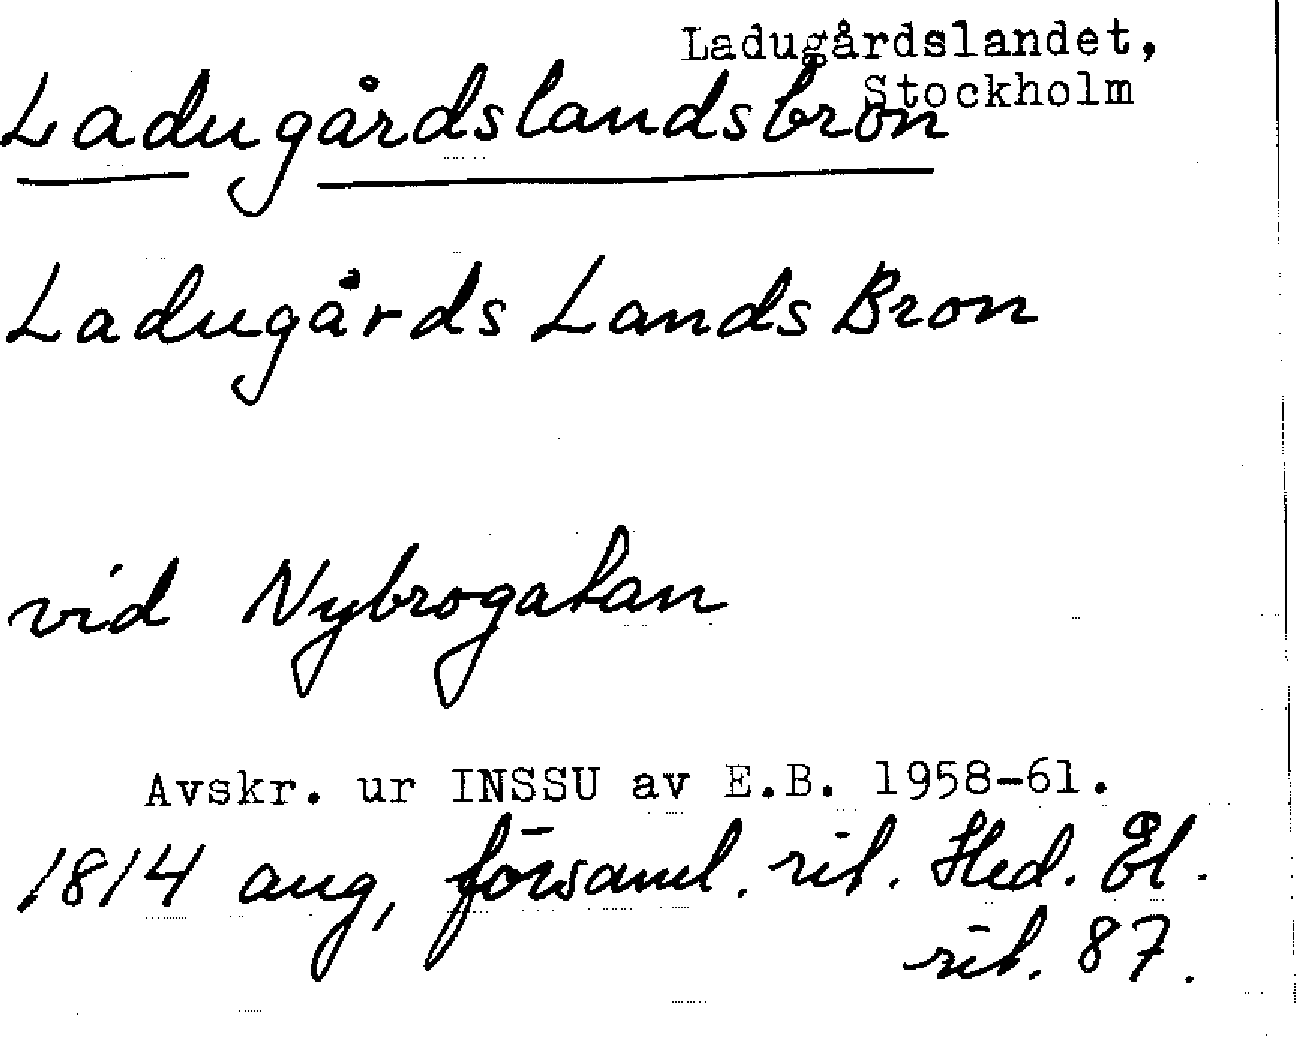 Ladugårdslandet,
Stockholm
Ladugårdslandsbron
Ladugårds Lands Bron
vid Nybrogatan
Avskr. ur INSSU av E.B. 1958-61.
1814 aug, församl. rit. Hed. Él.
rit. 87.